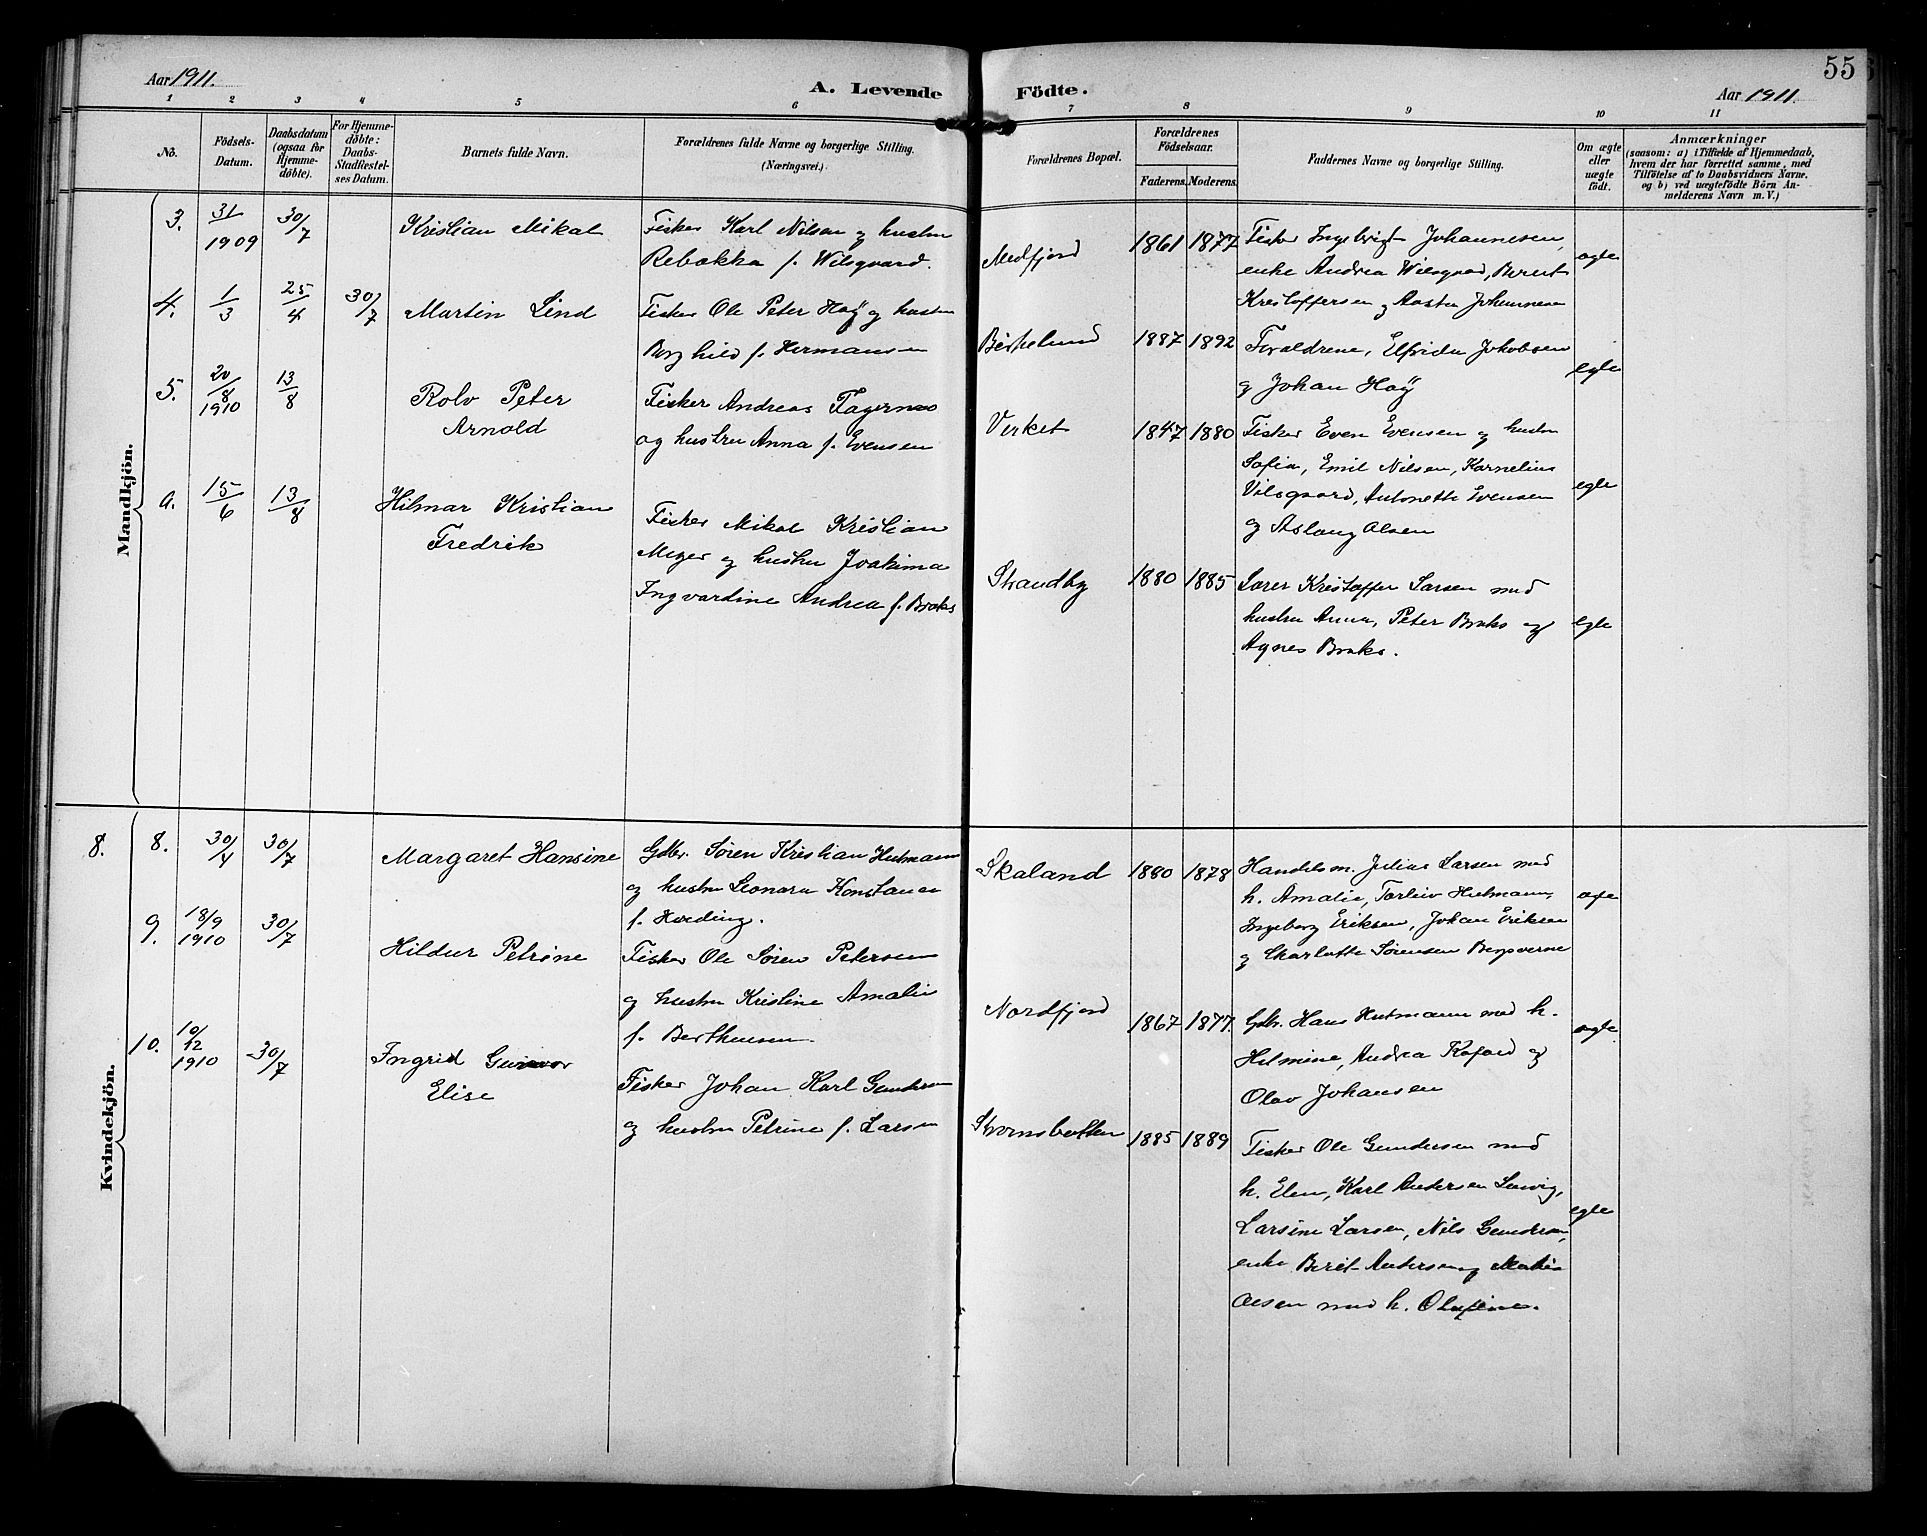 Aar 1911.
A. Levende Födte.
Aar 1911.
55
1 2 3 4 5 6 7 8 9 10 11
No.
Födsels-
Datum.
Daabsdatum
(ogsaa for
Hjemme-
döbte).
For Hjemme-
döbte:
Daabs-
Stadfæstel-
ses Datum.
Barnets fulde Navn.
Forældrenes fulde Navne og borgerlige Stilling.
(Næringsvei.)
Forældrenes Bopæl.
Forældrenes
Födselsaar.
Faderens. Moderens.
Faddernes Navne og borgerlige Stilling.
Om ægte
eller
uægte
födt.
Anmærkninger
(saasom: a) i Tilfælde af Hjemmedaab,
hvem der har forrettet samme, med
Tilföielse af to Daabsvidners Navne,
og b) ved uægtefödte Börn An-
melderens Navn m. V.)
Mandkjön.
3. 31/ 1909 30/7 Kristian Mikal
Fisker Karl Nilsen og hustru
Rebækka f. Wilsgaard.
Medfjord 1861 1877
Fisker Ingebrigt Johannesen,
enke Andrea Wilsgaard, Berent
Kristoffersen og Aasta Johannesen
ægte
4. 1/3 25/4 30/7 Martin Lind
Fisker Ole Peter Høÿ og hustru
Borghild f. Hermansen
Birkelund 1887 1892
Forældrene, Elfrida Jakobsen
og Johan Høÿ
egte
5. 20/8 1910 13/8 Rolv Peter
Arnold
Fisker Andreas Fagernes
og hustru Anna f. Evensen
Virket 1847 1880
Fisker Even Evensen og hustru
Sofia, Emil Nilsen, Kornelius
Vilsgaard, Antonette Evensen
og Aslaug Olsen
egte
6. 15/6 13/8 Hilmar Kristian
Fredrik
Fisker Mikal Kristian
Meyer og hustru Joakima
Ingvardine Andrea f. Braks
Strandby 1880 1885
Lærer Kristoffer Larsen med
hustru Anna, Peter Braks og
Agnes Braks.
egte
Kvindekjön.
8. 8. 30/4 30/7 Margaret Hansine
Gdbr. Søren Kristian Hutmann
og hustru Leonara Konstance
f. Harding.
Skaland 1880 1878
Handelsm. Julius Larsen med
h. Amalie, Torleiv Hutmann,
Ingeborg Eriksen, Johan Eriksen
og Charlotte Sørensen Bergsverne
9. 18/9 1910 30/7 Hildur Petrine
Fisker Ole Søren Petersen
og hustru Kristine Amalie
f. Bertheusen.
Nordfjord 1867 1877.
Gdbr. Hans Hutmann med h.
Hilmine, Andrea Kofoed og
Olav Johansen
ægte
10. 10/12 1910 30/7 Ingrid Gunvor
Elise
Fisker Johan Karl Gundersen
og hustru Petrine f. Larsen
Straumsbotten 1885 1889
Fisker Ole Gundersen med
h. Elen, Karl Andersen Lervig,
Larsine Larsen, Nils Gundersen,
enke Berit Andersen og
Olsen med h. Olufine.
egte